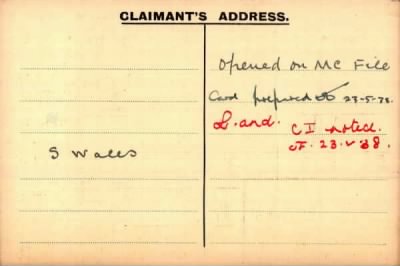 CLAIMANT'S ADDRESS.
S Wales
Opened on MC File
Card prepared 23-5-38.
L. and. CI noted.
JF. 23.V.38.